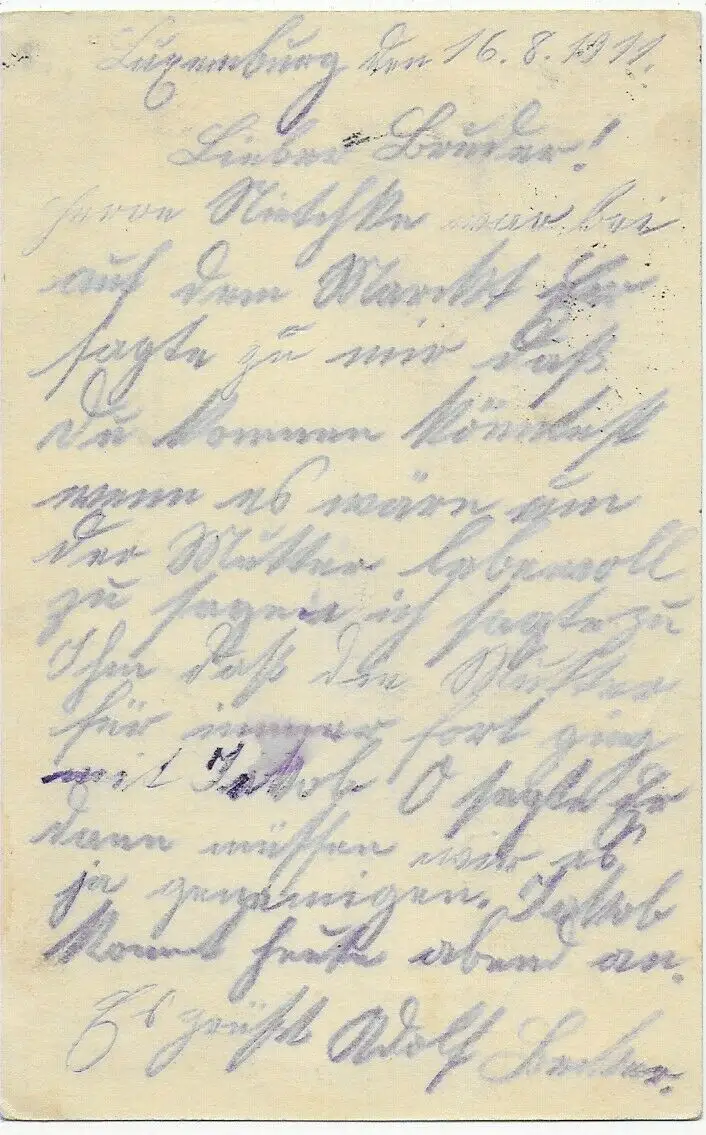 Luxemburg den 16.8.1911.
Lieber Bruder!
Herre Nietschke war bei
auf dem Marckt Er
sagte zu mir daß
du kommen könntest
wenn es wäre um
der Mutter lebewoll
zu sagen ich sagte zu
Ihm daß die Mutter
für immer fort ging
mit Jakob O sagte Er
dann müssen wir es
ja genemigen. Jakob
komt heute abend an.
Es grüßt Adolf